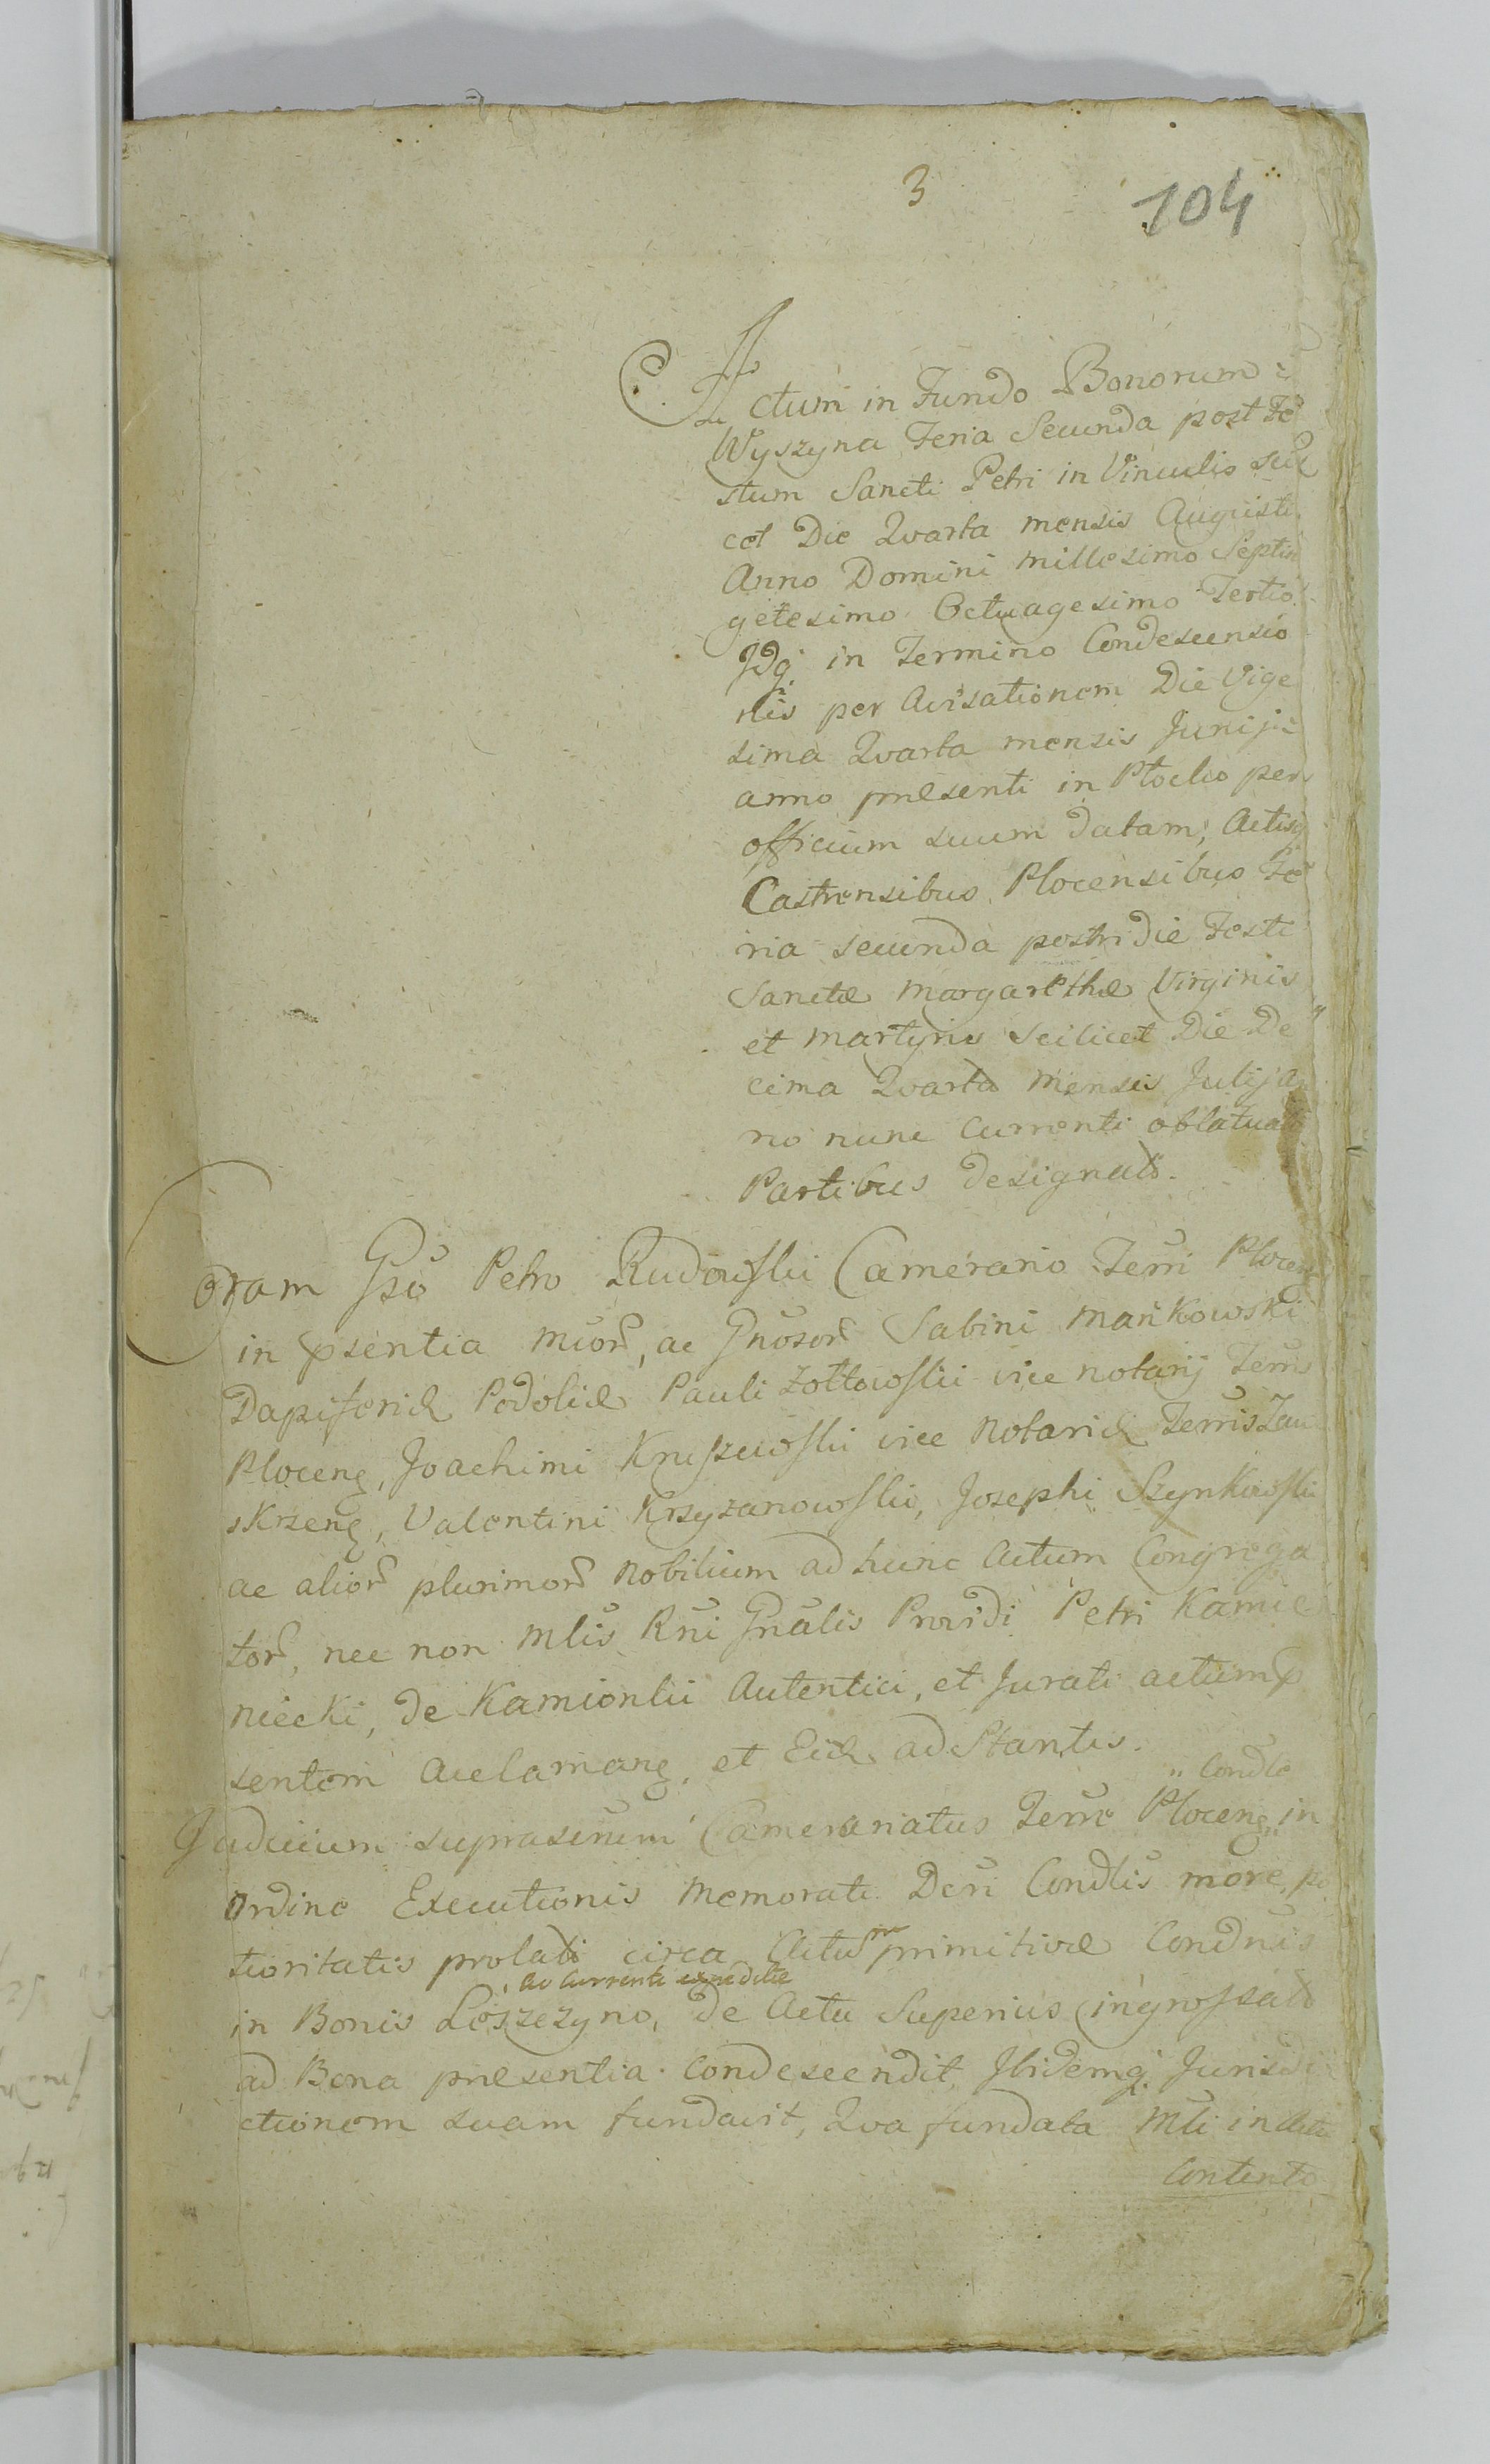 3
104
Actum in Fundo Bonorum
Wyszyna Feria Secunda post Fe
stum Sancti Petri in Vinculis scili
cet Die Qvarta mensis Augusti
Anno Domini millesimo Septin
getesimo Octuagesimo Tertio.
Idq in Termino Condescensio
nis per Avisationem Die Vige
sima Qvarta mensis Junij
anno præsenti in Plocko per
officium suum datam, Actisq
Castrensibus Plocensibus Fe
ria secunda postridie Festi
Sanctæ Margarethæ Virginis
et Martyris scilicet Die De
cima Qvarta Mensis Julij an
no nunc currenti oblatuatã
Partibus designato.
Coram Gso Petro Rudowski Camerario Terri Plocens
in psentia Mcor, ac Gnosor Sabini Mańkowski
Dapiferid Podoliæ Pauli Zołtowski vice notarij Terris
Plocens, Joachimi Kruszewski vice Notarid Terris Zaw
skrzens, Valentini Krzyzanowski, Josephi Szynkowski
ac alior plurimor Nobilium ad hunc Actum Congrega
tor, nec non Mlis Rni Gnalis Providi Petri Kamie
niecki, de Kamionki Autentici, et Jurati actum p
sentem Acclamans, et Eid adstantis.
Judicium suprascrum Camerariatus Terre Plocens, in
" Condle
Ordine Executionis Memorati Dcri Condlis more, po
tioritatis prolati circa Actum primitivæ Condnis
ac currenti expeditæ
in Bonis Loszczyno, de Actu Superius ingrossato
ad Bona præsentia condescendit, Ibidemq Jurisdi
ctionem suam fundavit, Qva fundata Mti in Actu
Contento